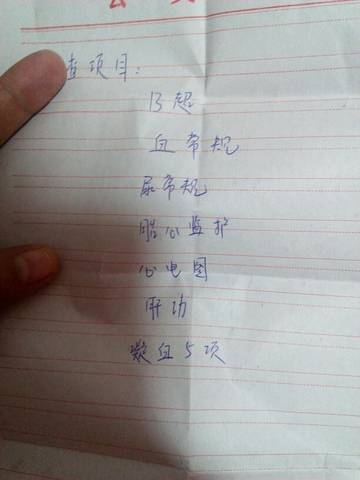 查项目:
B超
血常规
尿常规
胎心监护
心电图
肝功
凝血5项